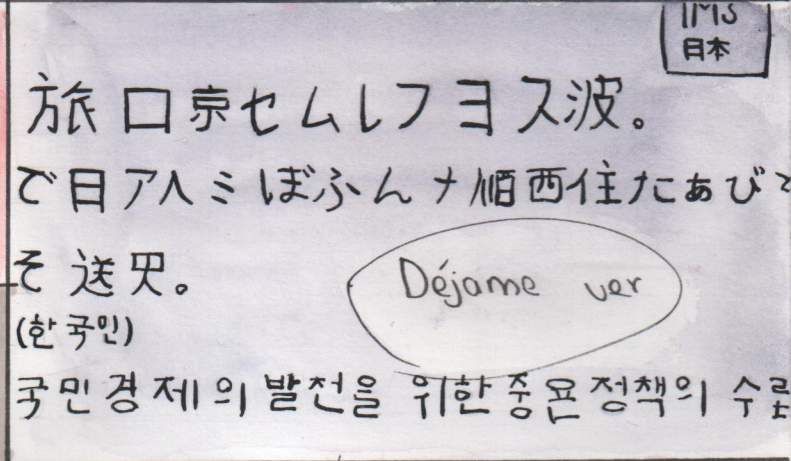 IMS
日本
旅口京セムレフヨス波。
で日アヘミばふんナ順西住たあびで
そ送兄。
Déjame ver
(한국민)
국민경제의 발전을 위한 중욘 정책의 수